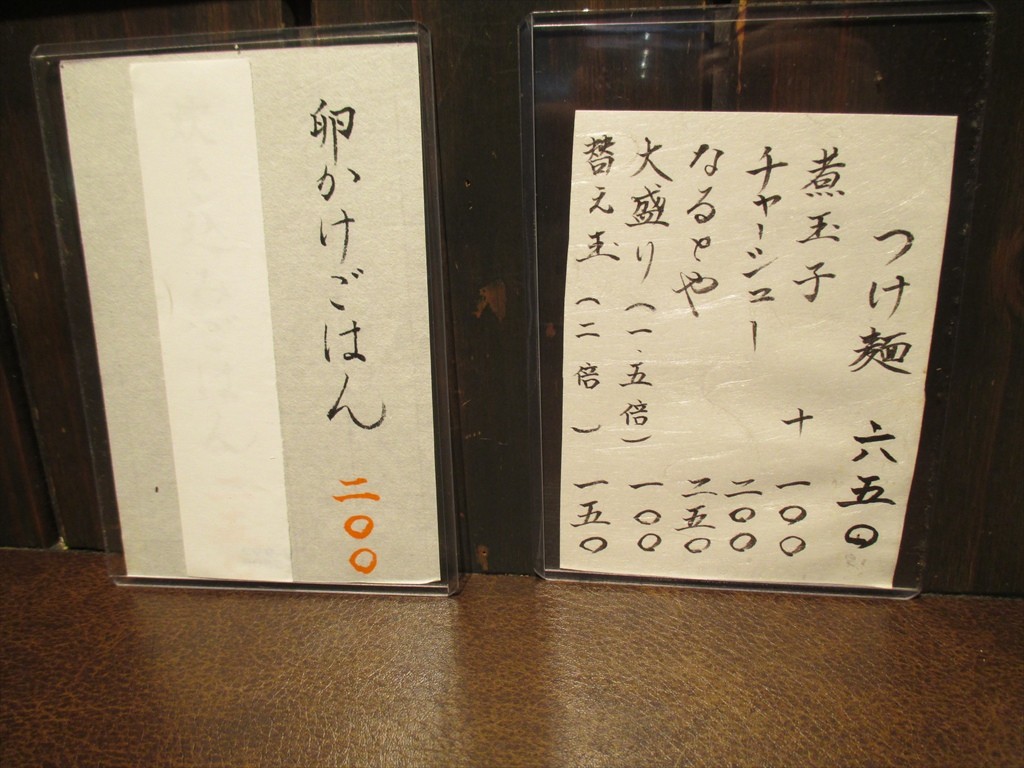 つけ麺 六五〇
煮玉子 十 一〇〇
チャーシュー 二〇〇
なるとや 二五〇
大盛り(一.五倍) 一〇〇
替え玉(二倍) 一五〇
卵かけごはん 二〇〇